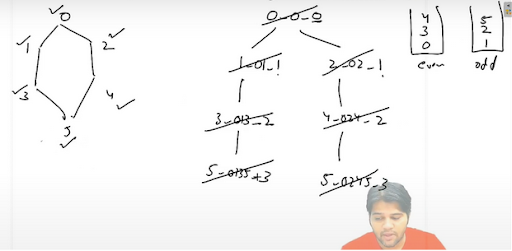 0
1 2
3 4
5
0-0-0
1-01-1 2-02-1
3-013-2 4-024-2
5-0135-3 5-0245-3
4 5
3 2
0 1
even odd